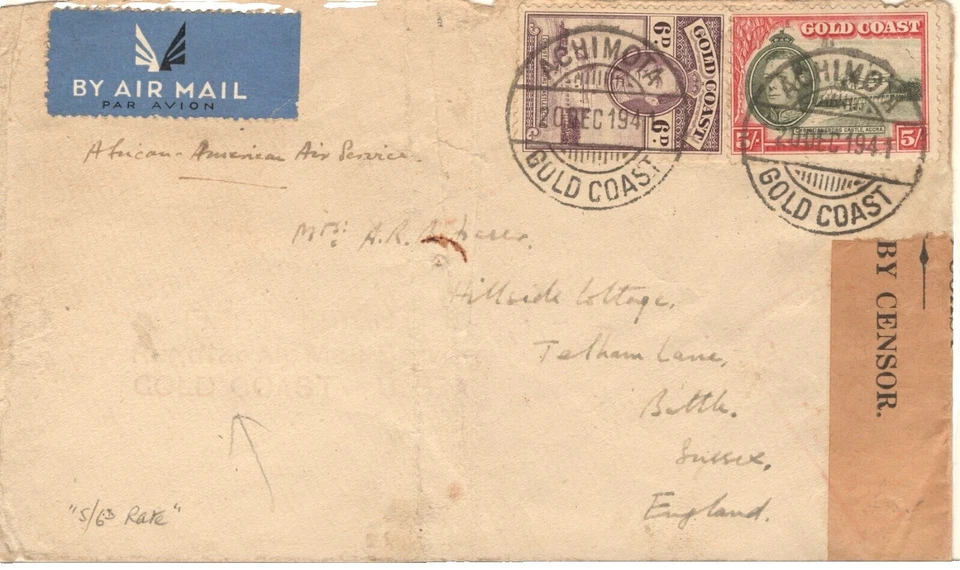 BY AIR MAIL
PAR AVION
African-American Air Service.
6D. GOLD COAST 6D.
GOLD COAST
5/- 5/-
CHRISTIANSBORG CASTLE, ACCRA
ACHIMOTA
20 DEC 1941
GOLD COAST
ACHIMOTA
20 DEC 1941
GOLD COAST
Mrs. A.R.
Hillside Cottage,
Telham Lane,
Battle.
Sussex,
England.
BY CENSOR.
"5/6D Rate"
GOLD COAST